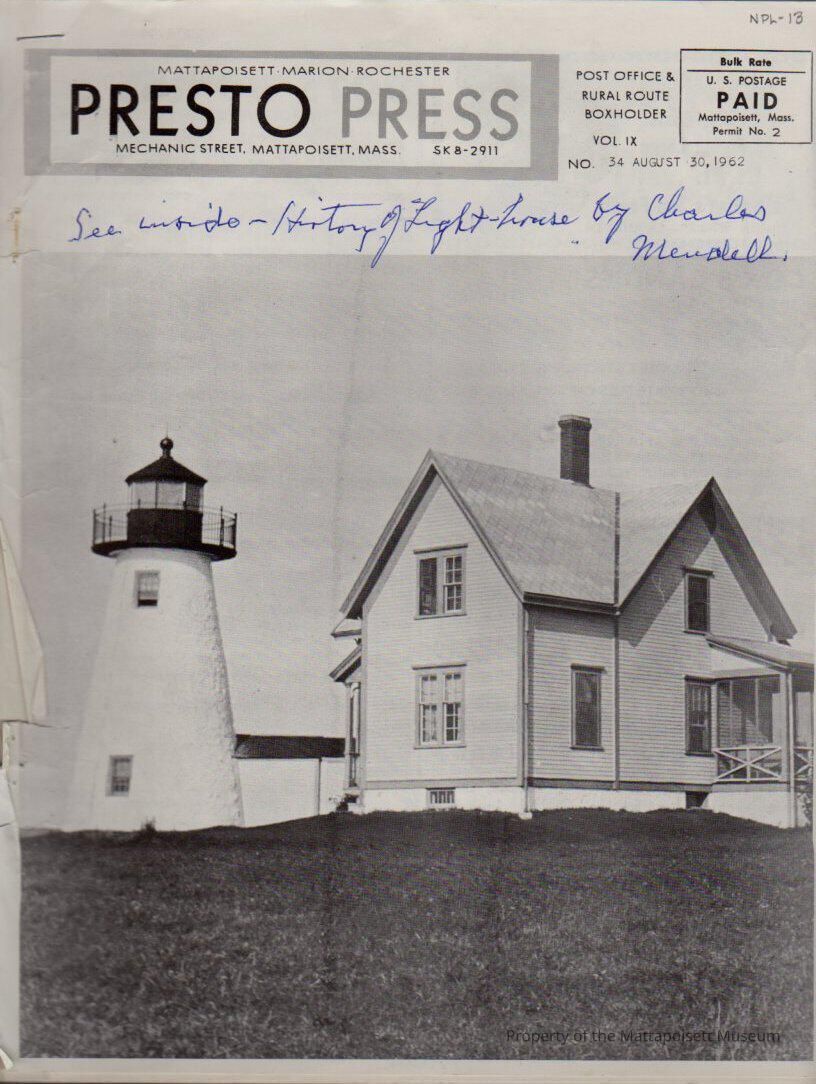 NPL-13
MATTAPOISETT·MARION·ROCHESTER
PRESTO PRESS
MECHANIC STREET, MATTAPOISETT, MASS. SK 8-2911
POST OFFICE &
RURAL ROUTE
BOXHOLDER
VOL. IX
NO. 34 AUGUST 30, 1962
Bulk Rate
U. S. POSTAGE
PAID
Mattapoisett, Mass.
Permit No. 2
See inside - History of Light-house by Charles
Mendell.
Property of the Mattapoisett Museum